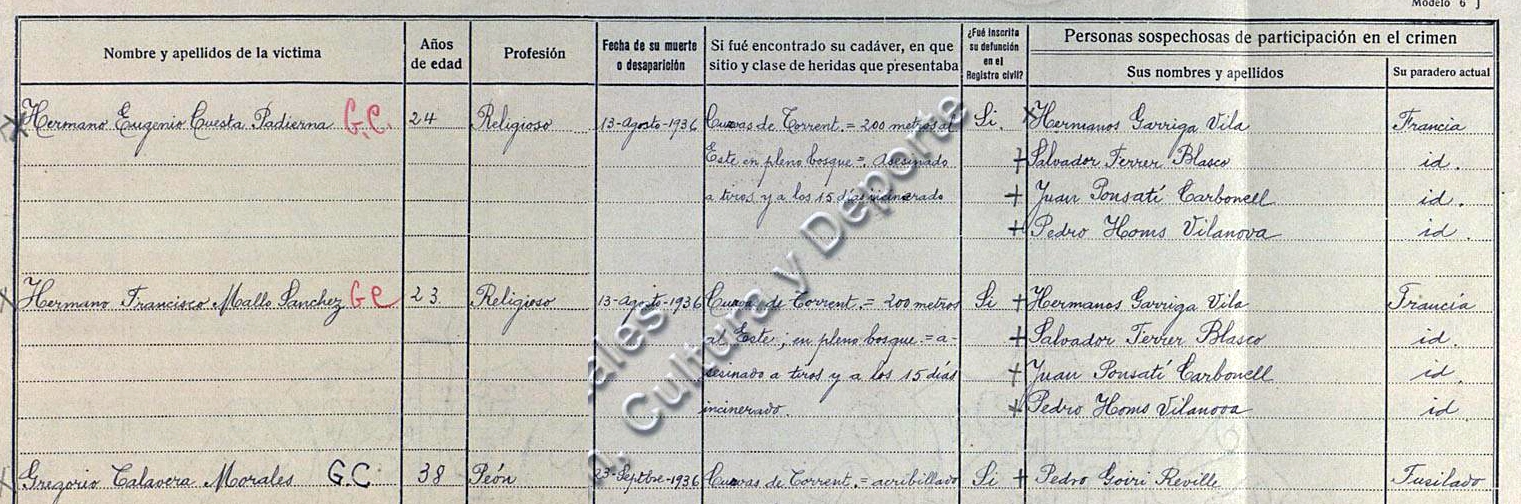 Modelo 6 J
Nombre y apellidos de la víctima
Años de edad
Profesión
Fecha de su muerte o desaparición
Si fué encontrado su cadáver, en que sitio y clase de heridas que presentaba
¿Fué inscrita su defunción en el Registro civil?
Personas sospechosas de participación en el crimen
Sus nombres y apellidos
Su paradero actual
Hermano Eugenio Cuesta Padierna G.C. 24 Religioso 13-Agosto-1936 Cuevas de Torrent.= 200 metros al Si. Hermanos Garriga Vila Francia
Este en pleno bosque =. Asesinado + Salvador Ferrer Blasco id.
a tiros y a los 15 días incinerado + Juan Ponsatí Carbonell id.
+ Pedro Homs Vilanova id.
Hermano Francisco Mallo Sanchez G C 23. Religioso 13-Agosto-1936 Cueva de Torrent.= 200 metros Si + Hermanos Garriga Vila Francia
al Este; en pleno bosque.= a- + Salvador Ferrer Blasco id.
sesinado a tiros y a los 15 días + Juan Ponsatí Carbonell id.
incinerado. + Pedro Homs Vilanova id
Gregorio Calavera Morales G.C 38 Peón 23-Septbre-1936 Cuevas de Torrent.= acribillado Si + Pedro Goiri Reville Fusilado
ales
Cultura y Deporte